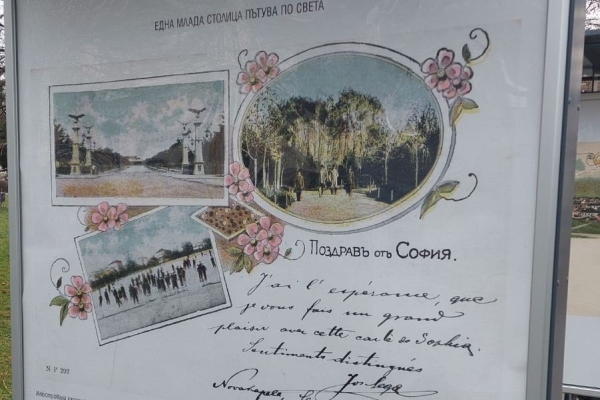 ЕДНА МЛАДА СТОЛИЦА ПЪТУВА ПО СВЕТА
Поздравъ отъ София.
J'ai l'espérance, que
je vous fais un grand
plaisir avec cette carte de Sophia.
Sentiments distingués
N I° 207